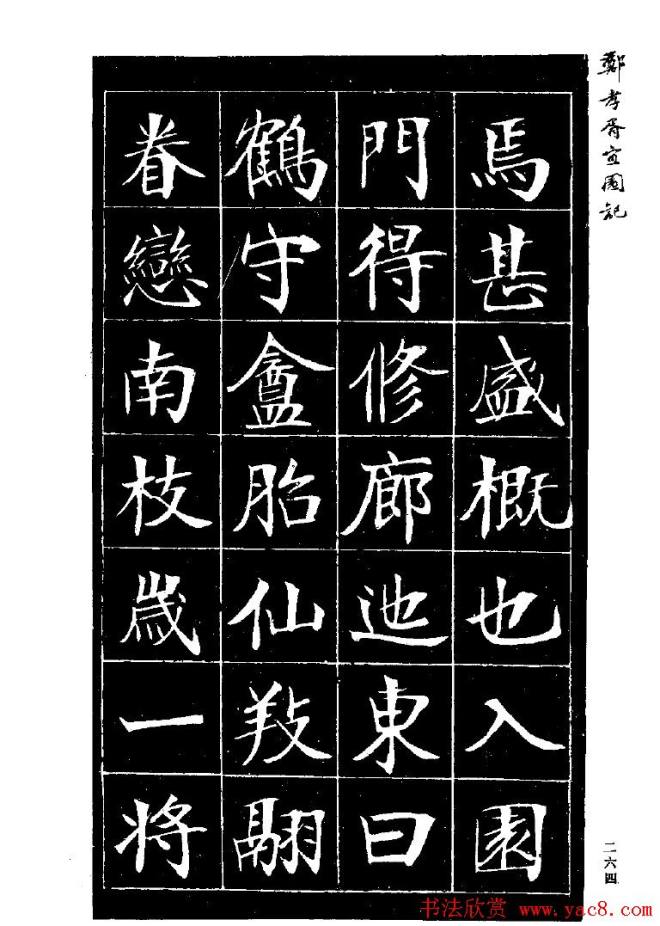 鄭孝胥宜園記
焉甚盛概也入園
門得修廊迆東曰
鶴守盦胎仙羖翮
眷戀南枝歲一將
二六四
书法欣赏 www.yac8.com